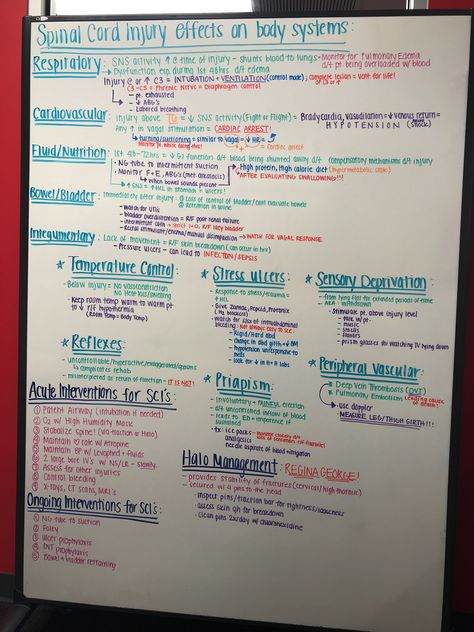 Spinal Cord Injury effects on body systems:
Respiratory: SNS activity ↑ @ time of injury - shunts blood to lungs → Monitor for Pulmonary Edema
d/t pt being overloaded w/ blood
→ Dysfunction exp. during 1st 48hrs d/t edema
Injury @ or ↑ C3 = INTUBATION + VENTILATION (control mode); complete lesion = vent for life!
C3-C5 = Phrenic Nerve = Diaphragm control
- pt. exhausted
- ↓ ABG's
- Labored breathing
Cardiovascular: Injury above T6 = ↓ SNS activity (Fight or Flight) = Bradycardia, vasodilation = ↓ venous return =
HYPOTENSION (shock)
Any ↑ in vagal stimulation = CARDIAC ARREST!
↳ turning/suctioning = similar to vagal = ↓ HR =
Monitor pt. while doing this! = Cardiac arrest
Fluid/Nutrition: 1st 48-72hrs = ↓ GI function d/t blood being shunted away d/t compensatory mechanisms d/t injury
- NG tube to intermittent suction
- Monitor F+E, ABG's (met. alkalosis)
→ High protein, High calorie diet (hypermetabolic state)
*AFTER EVALUATING SWALLOWING!!!
when bowel sounds present
↑ SNS = ↑ HCL in stomach = ulcers!
Bowel/Bladder: Immediately after injury: ⊖ loss of control of bladder/cant evacuate bowels
⊖ retention in urine
- Watch for UTIs
- bladder overdistention = R/F post renal failure
- intermittent cath → strict I+O, R/F lazy bladder
- Rectal stimulant/enema/manual disimpaction → WATCH FOR VAGAL RESPONSE
Integumentary: Lack of movement = R/F skin breakdown (can occur in hrs)
- Pressure ulcers - can lead to INFECTION/SEPSIS
* Temperature Control:
- Below injury = No vasoconstriction
No heat loss/sweating
- Keep room temp warm to warm pt
to ↓ r/f hypothermia
(Room Temp = Body Temp)
* Stress ulcers:
- Response to stress/trauma =
↑ HCL
- Give Zantac, Pepcid, Protonix
(H2 blockers)
- watch for s/s of intraabdominal
bleeding: Not always easy to see!
- Rigid/Hard abd
- change in abd girth → BM
- hypotension unresponsive to
meds
- look for ↓ in H+H labs
* Sensory Deprivation:
- from lying flat for extended periods of time
- AEB: withdrawn
- Stimulate pt. above injury level
- talk w/ pt
- music
- smells
- flavors
- prism glasses for watching TV lying down
* Reflexes:
- uncontrollable/hyperactive/exaggerated/spasms
↳ complicates rehab
- misinterpreted as return of function - IT IS NOT!
* Priapism:
- Involuntary + PAINFUL erection
- d/t uncontrolled inflow of blood
- leads to ED + impotence if
sustained
- tx: ice packs
analgesics
needle aspirate of blood + irrigation
* Peripheral Vascular:
Deep Vein Thrombosis (DVT)
Pulmonary Embolism Leading cause
of death!
- use doppler
- MEASURE LEG/THIGH GIRTH!!!
Acute Interventions for SCI's:
① Patent Airway (intubation if needed)
② O2 w/ High Humidity Mask
③ Stabalize Spine! (via traction or Halo)
④ Maintain ♡ rate w/ Atropine
⑤ Maintain BP w/ Levophed + fluids
⑥ 2 large bore IV's w/ NS/LR - slowly
⑦ Assess for other injuries
⑧ Control bleeding
⑨ X-rays, CT scans, MRI's
Halo Management: REGINA GEORGE!
- provides stability of fractures (cervical/high thoracic)
- secured w/ 4 pins to the head
- inspect pins/traction bar for tightness/looseness
- assess skin qh for breakdown
- clean pins 2x/day w/ chlorohexidine
Ongoing Interventions for SCI's:
① NG tube to suction
② Foley
③ Ulcer prophylaxis
④ DVT prophylaxis
⑤ Bowel + bladder retraining